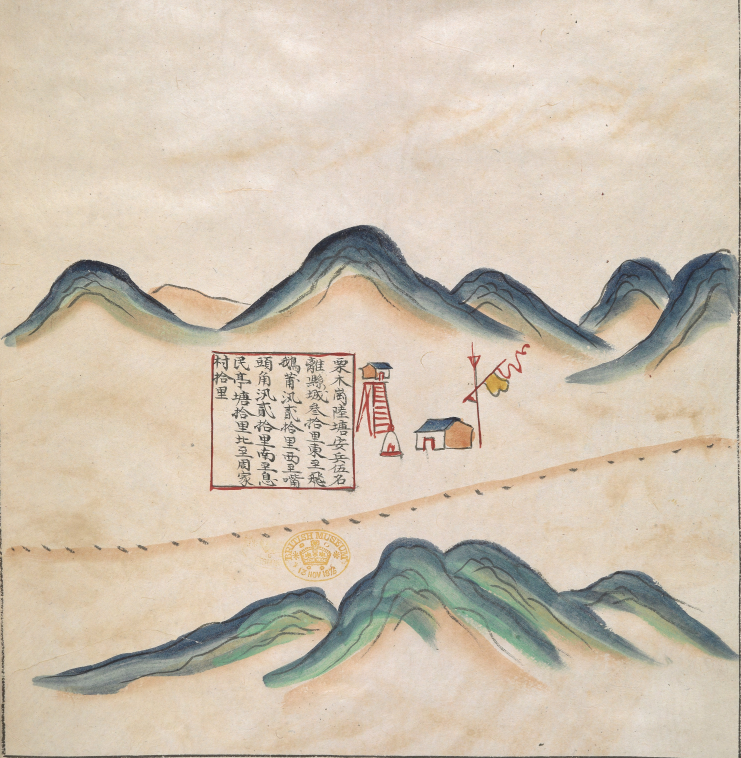 栗木崗陸塘安兵伍名
離縣城叁拾里東至飛
鵝莆汛貳拾里西至嘴
頭角汛貳拾里南至息
民亭塘拾里北至周家
村拾里